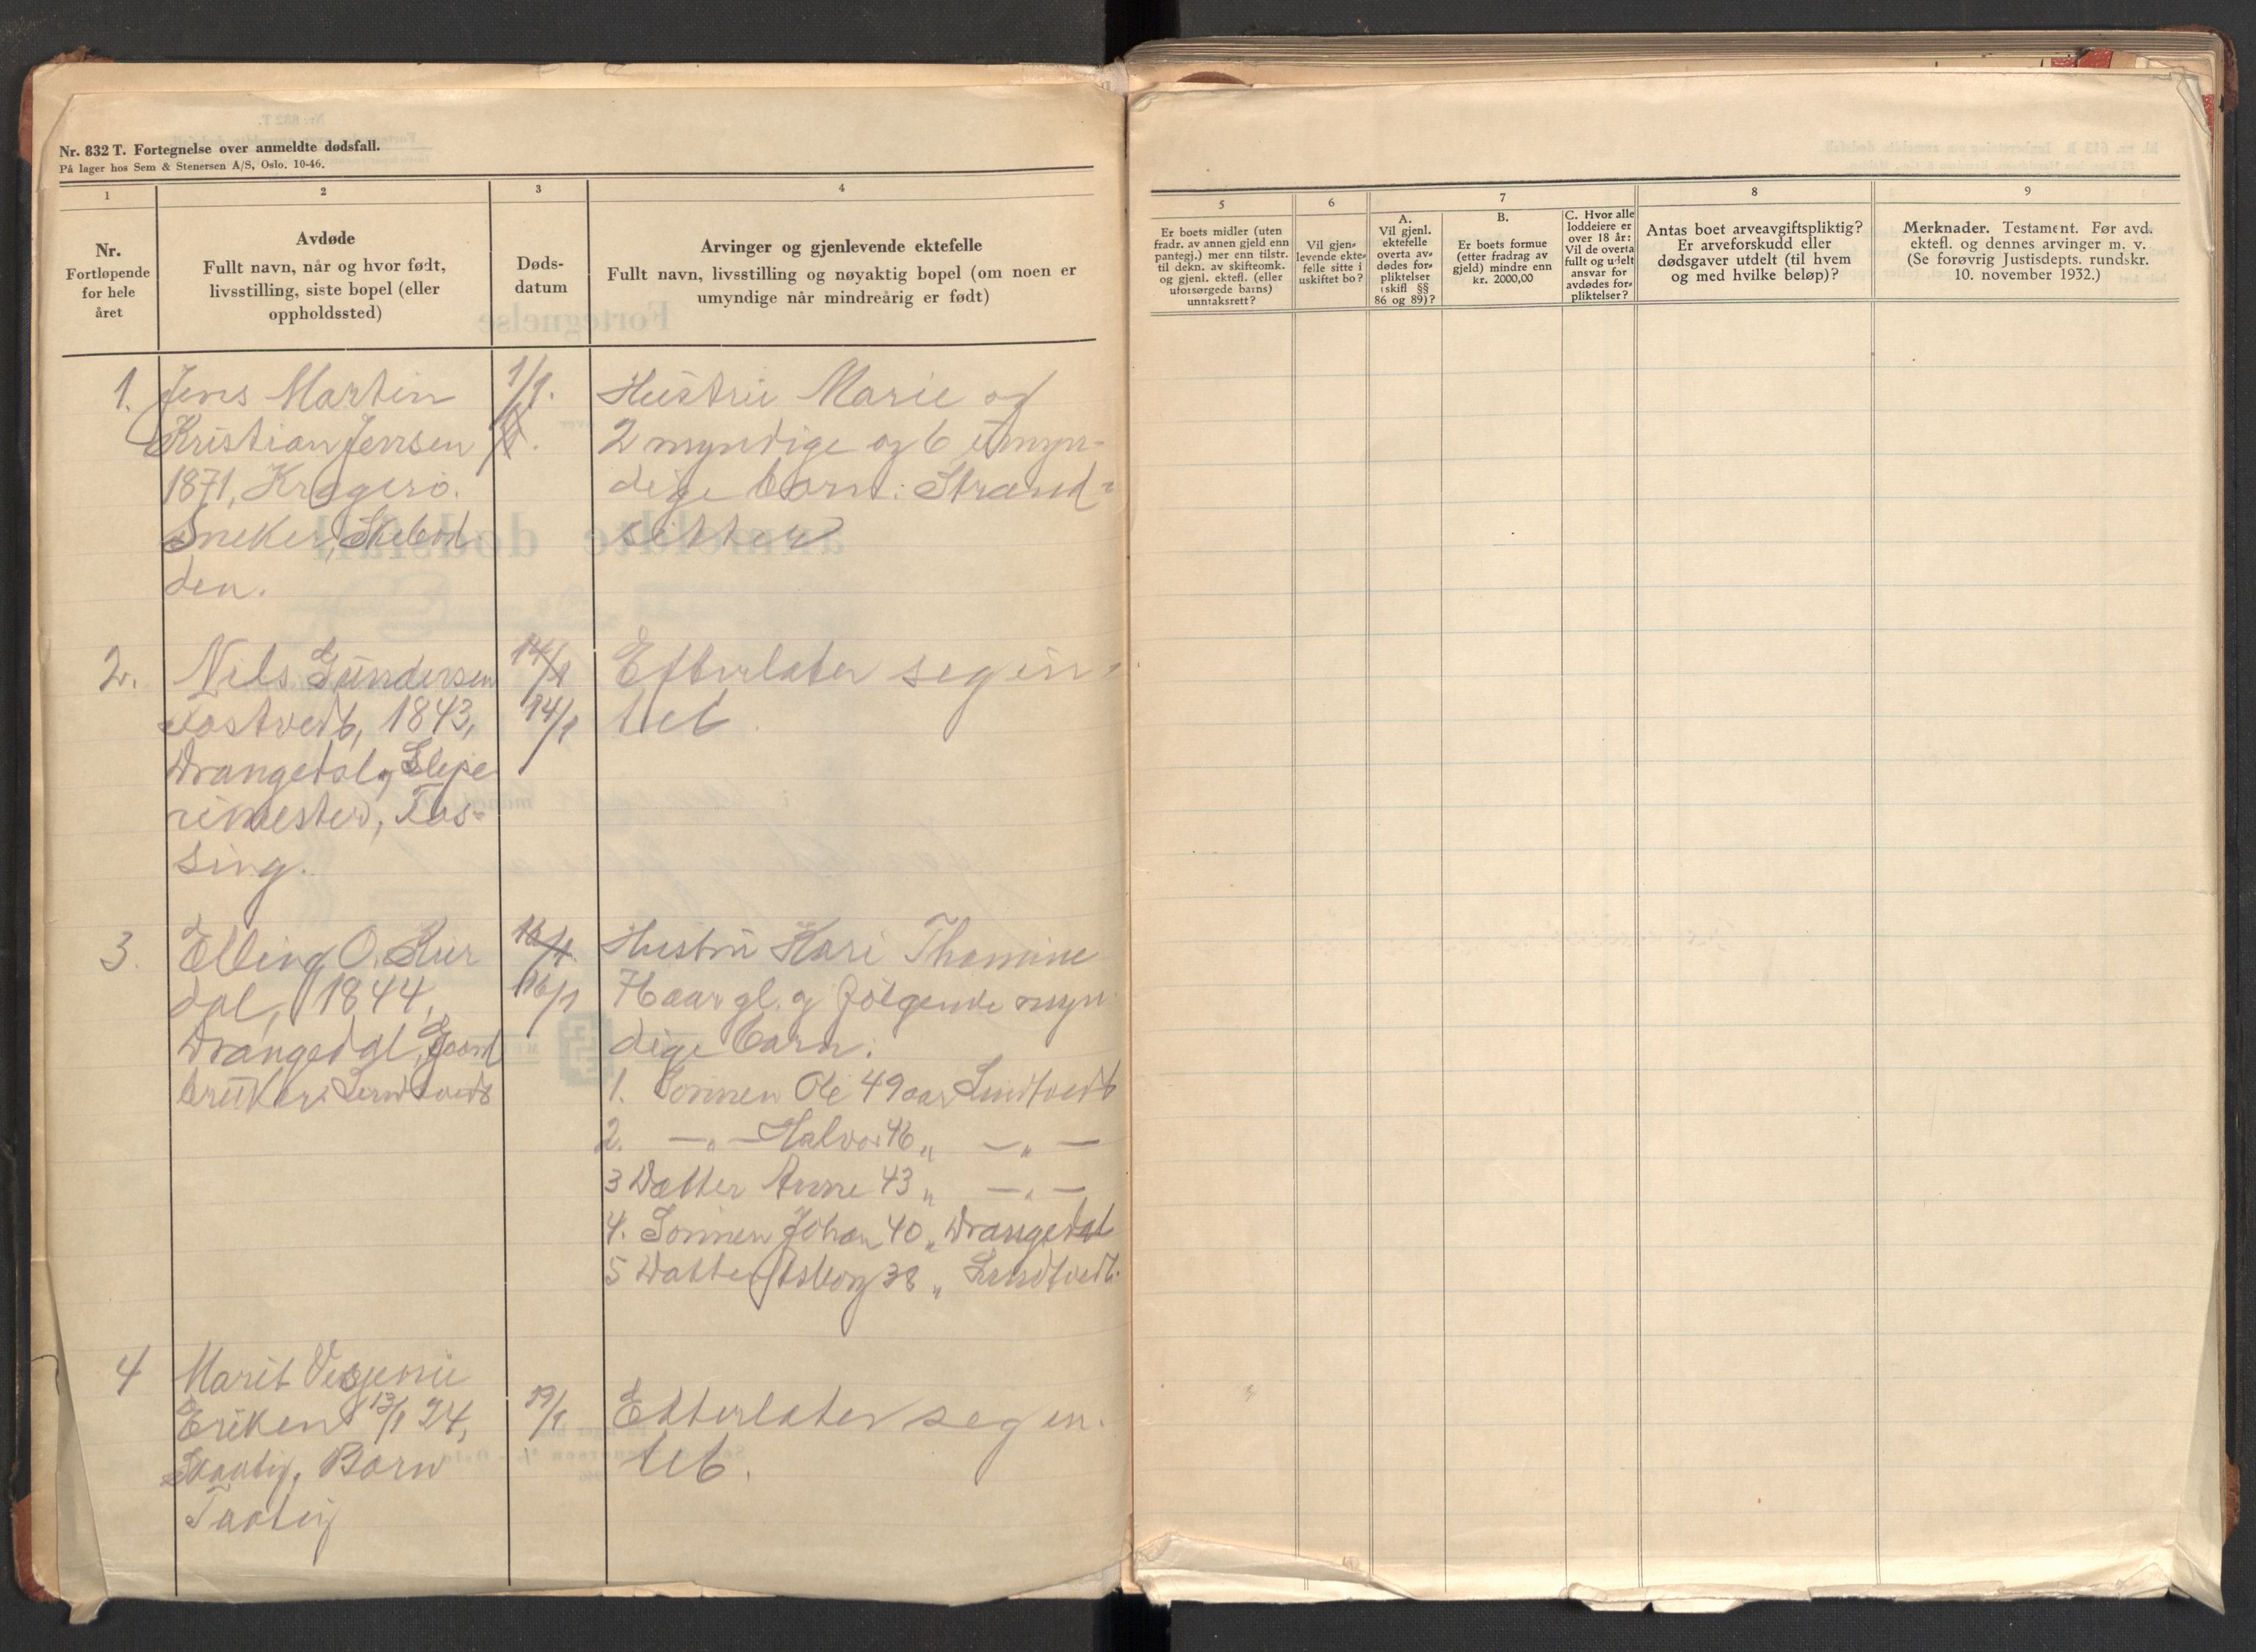 Nr. 832 T. Fortegnelse over anmeldte dødsfall.
På lager hos Sem & Stenersen A/S, Oslo. 10-46.
1
2
3
4
Nr.
Fortløpende
for hele
året
Avdøde
Fullt navn, når og hvor født,
livsstilling, siste bopel (eller
oppholdssted)
Døds-
datum
Arvinger og gjenlevende ektefelle
Fullt navn, livsstilling og nøyaktig bopel (om noen er
umyndige når mindreårig er født)
1. Jens Martin
Kristian Jensen
1871, Kragerø.
Sneker,
den.
1/1.
Hustru Marie og
2 myndige og 6 umyn-
dige barn: Strand-
sitter
2. Nils Gundersen
Tostvedt, 1843,
Drangedal, Slipe
rimester, Tos-
sing.
14/1
14/1
Efterlater seg in-
tet.
3. Elling O. Kur
dal, 1844,
Drangedal, Gaard
bruker,
16/1.
16/1
Hustru Kari Thomine
76 aar gl. og følgende myn
dige barn:
1. Sønnen Ole 49 aar Lundtvedt
2. —„— Halvor 46 „ —„—
3 Datter Anne 43 „ —„—
4. Sønnen Johan 40 „ Drangedal
5 Datter Asborg 38 „ Lundtvedt.
4 Marit
Eriken 13/1 24,
Barn
19/1
Etterlater seg in-
tet.
5
6
7
8
9
Er boets midler (uten
fradr. av annen gjeld enn
pantegj.) mer enn tilstr.
til dekn. av skifteomk.
og gjenl. ektefl. (eller
uforsørgede barns)
unntaksrett?
Vil gjen-
levende ekte-
felle sitte i
uskiftet bo?
A.
Vil gjenl.
ektefelle
overta av-
dødes for-
pliktelser
(skifl §§
86 og 89)?
B.
Er boets formue
(etter fradrag av
gjeld) mindre enn
kr. 2000,00
C. Hvor alle
loddeiere er
over 18 år:
Vil de overta
fullt og udelt
ansvar for
avdødes for-
pliktelser?
Antas boet arveavgiftspliktig?
Er arveforskudd eller
dødsgaver utdelt (til hvem
og med hvilke beløp)?
Merknader. Testament. Før avd.
ektefl. og dennes arvinger m. v.
(Se forøvrig Justisdepts. rundskr.
10. november 1932.)